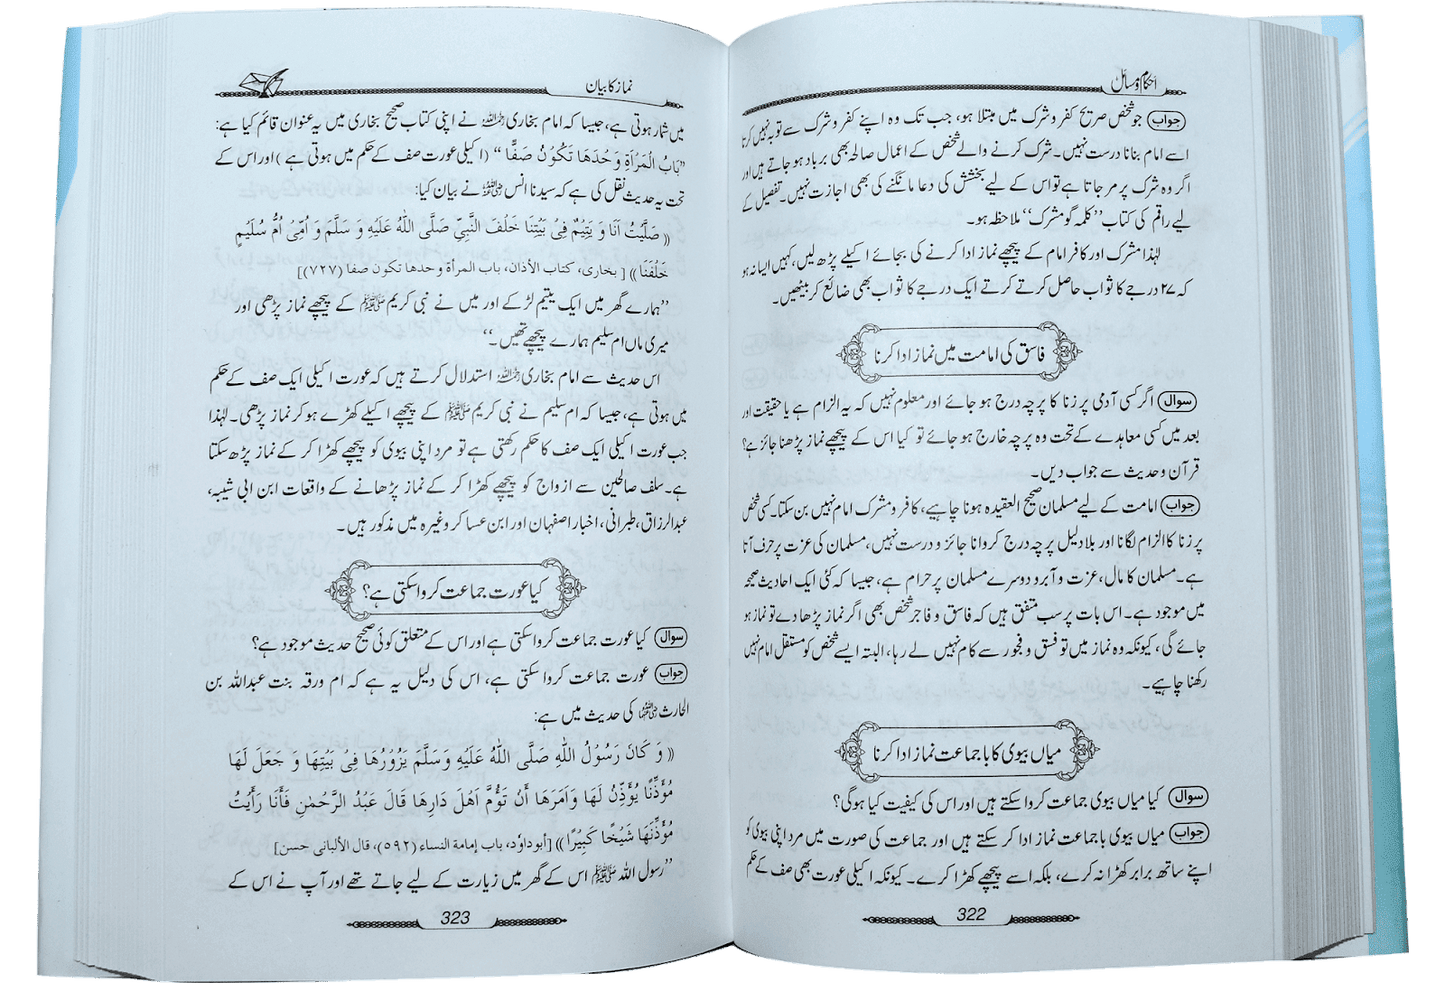 احکام و مسائل
جواب جو شخص صریح کفر و شرک میں مبتلا ہو، جب تک وہ اپنے کفر و شرک سے توبہ نہیں کرتا
اسے امام بنانا درست نہیں۔ شرک کرنے والے شخص کے اعمال صالحہ بھی برباد ہو جاتے ہیں اور
اگر وہ شرک پر مر جاتا ہے تو اس کے لیے بخشش کی دعا مانگنے کی بھی اجازت نہیں۔ تفصیل کے
لیے راقم کی کتاب ’’کلمہ گو مشرک‘‘ ملاحظہ ہو۔
لہٰذا مشرک اور کافر امام کے پیچھے نماز ادا کرنے کی بجائے اکیلے پڑھ لیں، کہیں ایسا نہ ہو
کہ ۲۷ درجے کا ثواب حاصل کرتے کرتے ایک درجے کا ثواب بھی ضائع کر بیٹھیں۔
فاسق کی امامت میں نماز ادا کرنا
سوال اگر کسی آدمی پر زنا کا پرچہ درج ہو جائے اور معلوم نہیں کہ یہ الزام ہے یا حقیقت اور
بعد میں کسی معاہدے کے تحت وہ پرچہ خارج ہو جائے تو کیا اس کے پیچھے نماز پڑھنا جائز ہے؟
قرآن و حدیث سے جواب دیں۔
جواب امامت کے لیے مسلمان صحیح العقیدہ ہونا چاہیے، کافر و مشرک امام نہیں بن سکتا۔ کسی شخص
پر زنا کا الزام لگانا اور بلا دلیل پرچہ درج کروانا جائز و درست نہیں، مسلمان کی عزت پر حرف آتا
ہے۔ مسلمان کا مال، عزت و آبرو دوسرے مسلمان پر حرام ہے، جیسا کہ کئی ایک احادیث صحیحہ
میں موجود ہے۔ اس بات پر سب متفق ہیں کہ فاسق و فاجر شخص بھی اگر نماز پڑھا دے تو نماز ہو
جائے گی، کیونکہ وہ نماز میں تو فسق و فجور سے کام نہیں لے رہا، البتہ ایسے شخص کو مستقل امام نہیں
رکھنا چاہیے۔
میاں بیوی کا با جماعت نماز ادا کرنا
سوال کیا میاں بیوی جماعت کروا سکتے ہیں اور اس کی کیفیت کیا ہوگی؟
جواب میاں بیوی با جماعت نماز ادا کر سکتے ہیں اور جماعت کی صورت میں مرد اپنی بیوی کو
اپنے ساتھ برابر کھڑا نہ کرے، بلکہ اسے پیچھے کھڑا کرے۔ کیونکہ اکیلی عورت بھی صف کے حکم
322
نماز کا بیان
میں شمار ہوتی ہے، جیسا کہ امام بخاری رحمہ اللہ نے اپنی کتاب صحیح بخاری میں یہ عنوان قائم کیا ہے:
’’بَابُ الْمَرْأَةِ وَحْدَهَا تَكُوْنُ صَفًّا‘‘ (اکیلی عورت صف کے حکم میں ہوتی ہے) اور اس کے
تحت یہ حدیث نقل کی ہے کہ سیدنا انس رضی اللہ عنہ نے بیان کیا:
(( صَلَّيْتُ اَنَا وَ يَتِيْمٌ فِيْ بَيْتِنَا خَلْفَ النَّبِيِّ صَلَّى اللّٰهُ عَلَيْهِ وَ سَلَّمَ وَ اُمِّيْ اُمُّ سُلَيْمٍ
خَلْفَنَا )) [ بخاری، کتاب الأذان، باب المرأة وحدها تكون صفا (۷۲۷)]
’’ہمارے گھر میں ایک یتیم لڑکے اور میں نے نبی کریم ﷺ کے پیچھے نماز پڑھی اور
میری ماں ام سلیم ہمارے پیچھے تھیں۔‘‘
اس حدیث سے امام بخاری رحمہ اللہ استدلال کرتے ہیں کہ عورت اکیلی ایک صف کے حکم
میں ہوتی ہے، جیسا کہ ام سلیم نے نبی کریم ﷺ کے پیچھے اکیلے کھڑے ہو کر نماز پڑھی۔ لہٰذا
جب عورت اکیلی ایک صف کا حکم رکھتی ہے تو مرد اپنی بیوی کو پیچھے کھڑا کر کے نماز پڑھ سکتا
ہے۔ سلف صالحین سے ازواج کو پیچھے کھڑا کر کے نماز پڑھانے کے واقعات ابن ابی شیبہ،
عبدالرزاق، طبرانی، اخبار اصفہان اور ابن عساکر وغیرہ میں مذکور ہیں۔
کیا عورت جماعت کروا سکتی ہے؟
سوال کیا عورت جماعت کروا سکتی ہے اور اس کے متعلق کوئی صحیح حدیث موجود ہے؟
جواب عورت جماعت کروا سکتی ہے، اس کی دلیل یہ ہے کہ ام ورقہ بنت عبداللہ بن
الحارث رضی اللہ عنہا کی حدیث میں ہے:
(( وَ كَانَ رَسُوْلُ اللّٰهِ صَلَّى اللّٰهُ عَلَيْهِ وَسَلَّمَ يَزُوْرُهَا فِيْ بَيْتِهَا وَ جَعَلَ لَهَا
مُؤَذِّنًا يُؤَذِّنُ لَهَا وَاَمَرَهَا أَنْ تَؤُمَّ اَهْلَ دَارِهَا قَالَ عَبْدُ الرَّحْمٰنِ فَأَنَا رَأَيْتُ
مُؤَذِّنَهَا شَيْخًا كَبِيْرًا )) [أبوداوٗد، باب إمامة النساء (۵۹۲)، قال الألباني حسن]
’’رسول اللہ ﷺ اس کے گھر میں زیارت کے لیے جاتے تھے اور آپ نے اس کے
323